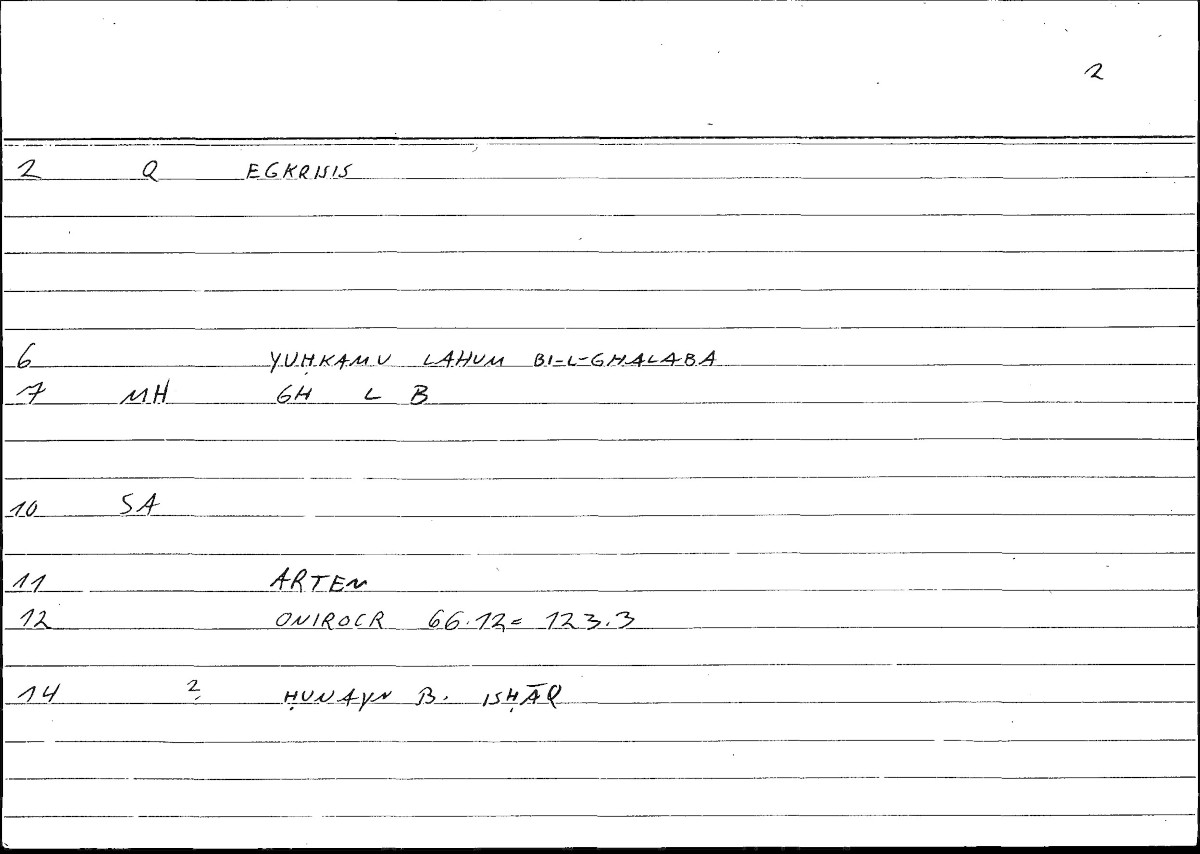 2
2 Q EGKRISIS
6 YUḤKAMU LAHUM BI-L-GHALABA
7 MH GH L B
10 SA
11 ARTEM
12 ONIROCR 66.12= 123.3
14 2 ḤUNAYN B. ISḤĀQ